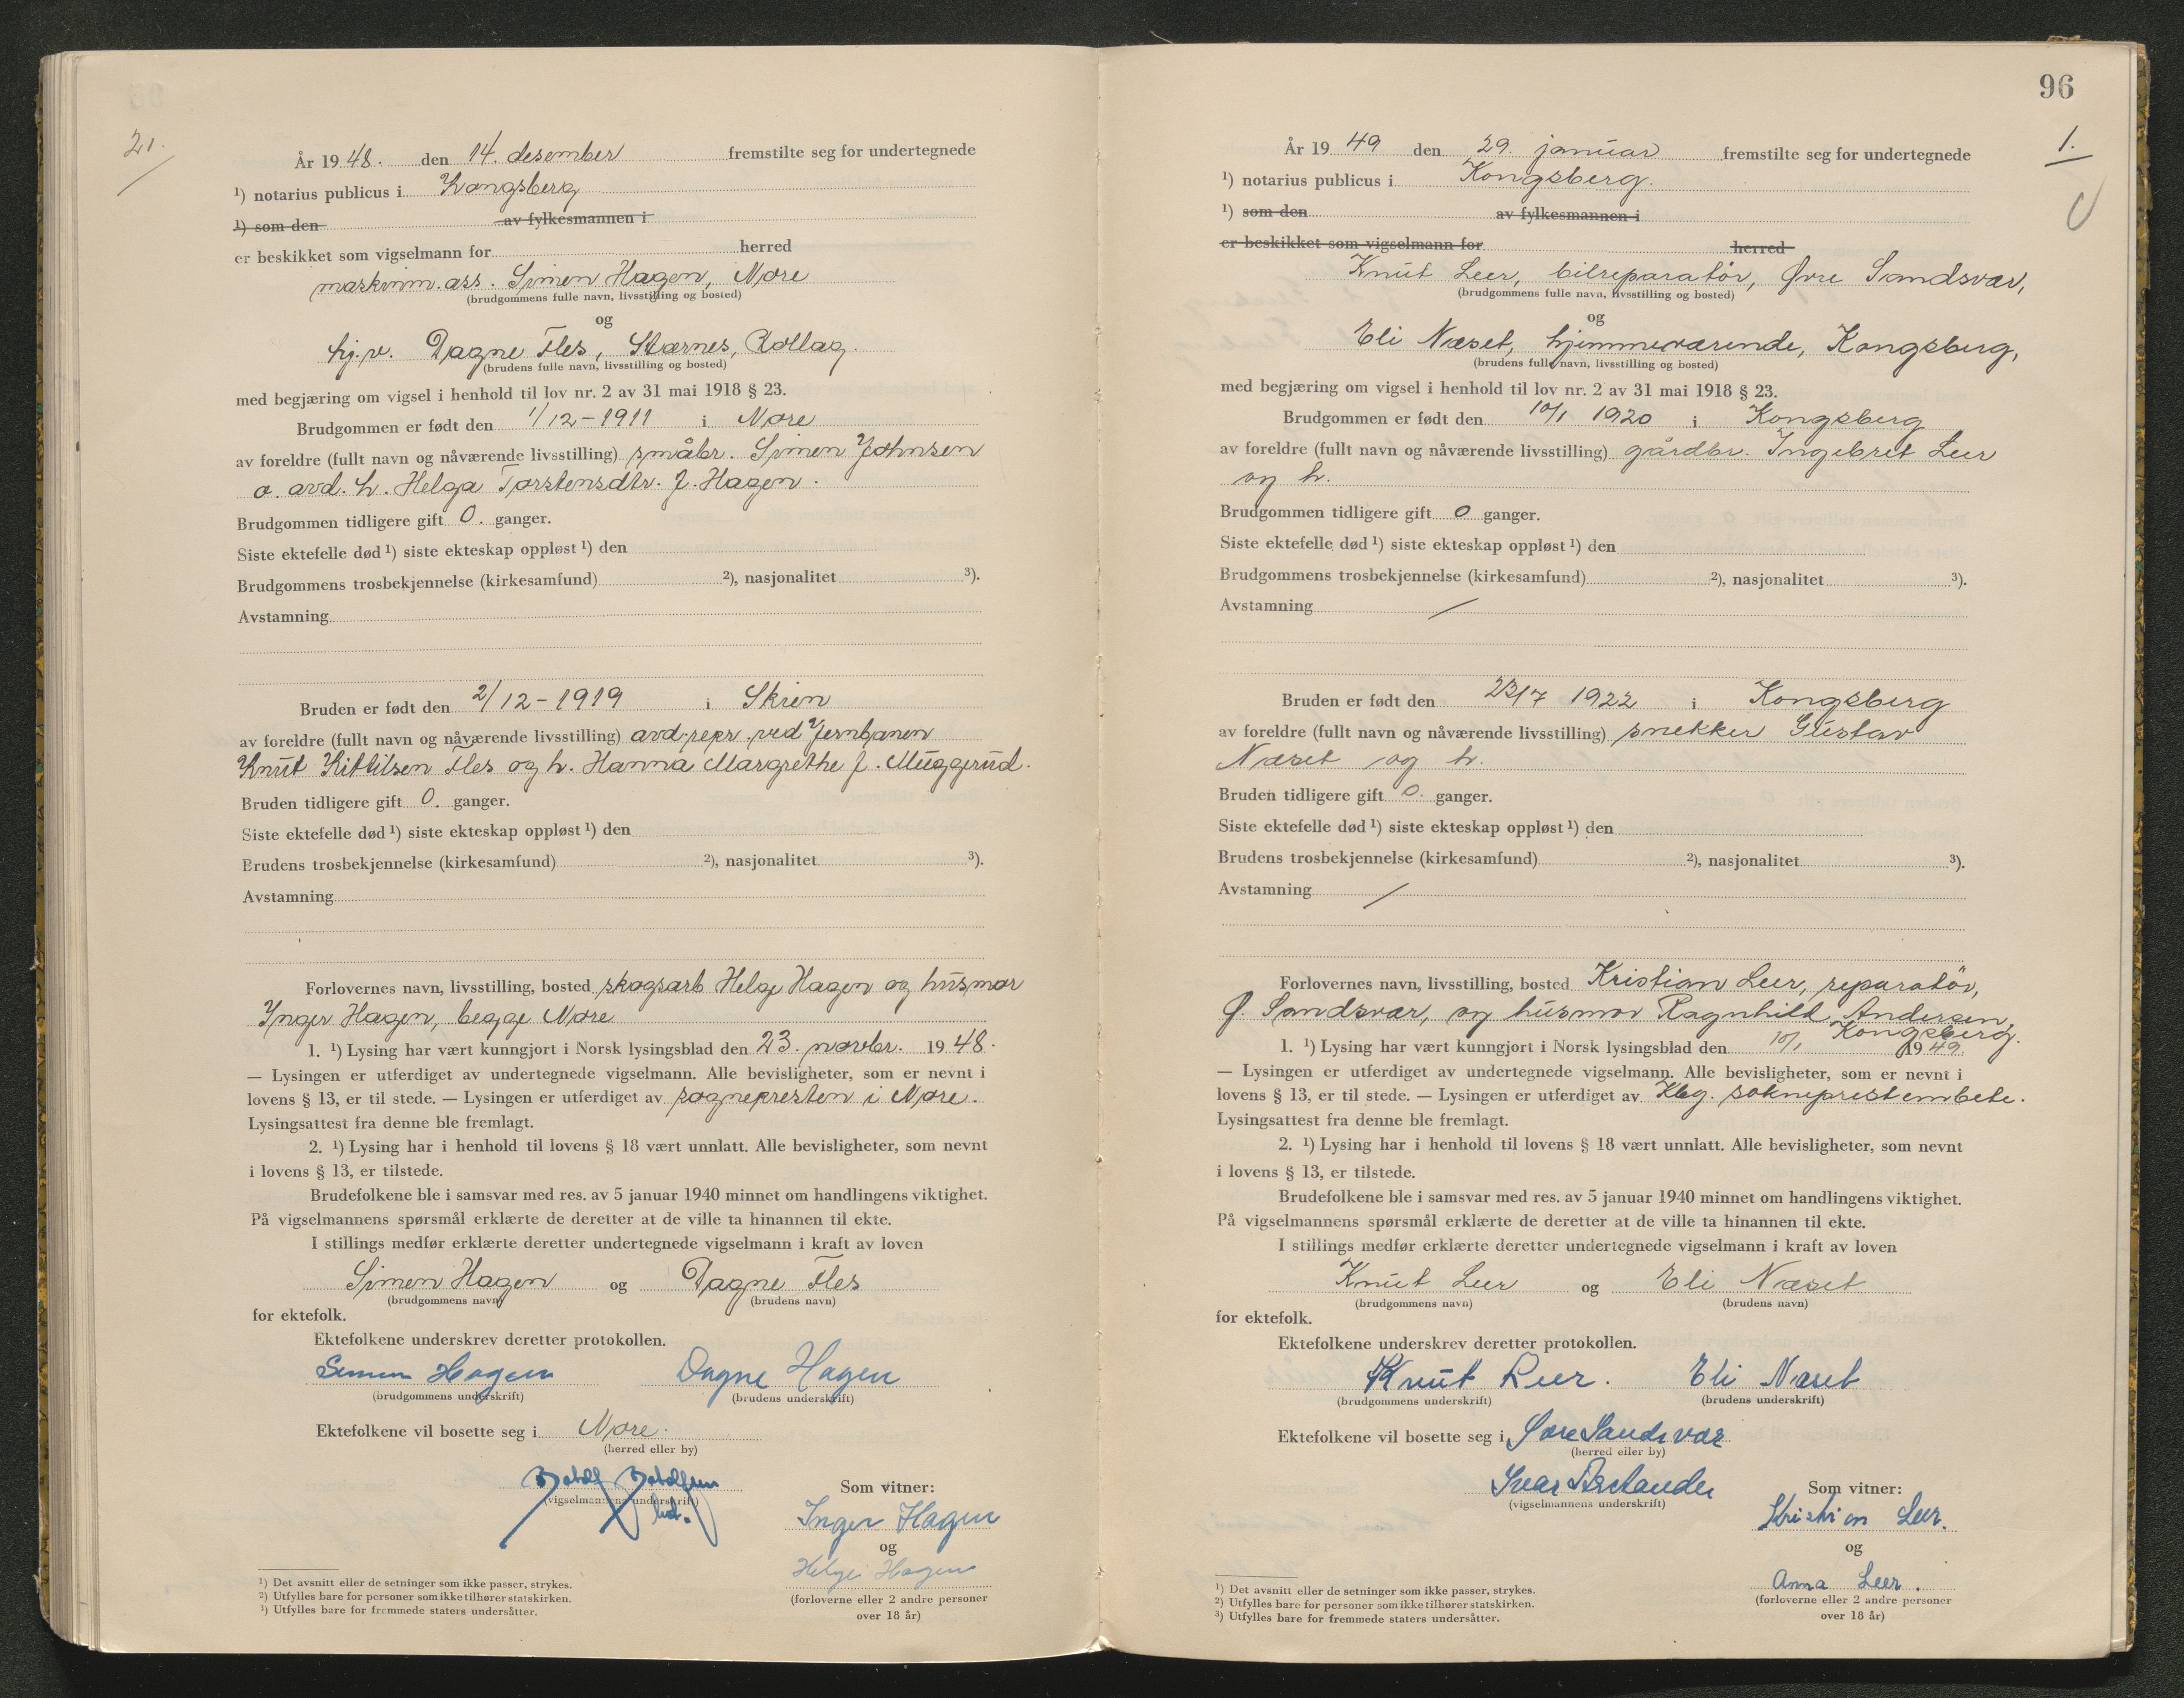 21.
År 1948. den 14. desember fremstilte seg for undertegnede
¹) notarius publicus i Kongsberg
¹) som den av fylkesmannen i
er beskikket som vigselmann for herred
maskinm. ass. Simen Hagen, Nore
(brudgommens fulle navn, livsstilling og bosted)
og
hj.v. Dagne Fles, Stærnes, Rollag.
(brudens fulle navn, livsstilling og bosted)
med begjæring om vigsel i henhold til lov nr. 2 av 31 mai 1918 § 23.
Brudgommen er født den 1/12-1911 i Nore
av foreldre (fullt navn og nåværende livsstilling) småbr. Simen Johnsen
o. avd. h. Helga Torstensdtr. f. Hagen.
Brudgommen tidligere gift 0. ganger.
Siste ektefelle død ¹) siste ekteskap oppløst ¹) den
Brudgommens trosbekjennelse (kirkesamfund) ²), nasjonalitet ³).
Avstamning
Bruden er født den 2/12-1919 i Skien
av foreldre (fullt navn og nåværende livsstilling) avd. repr. ved Jernbanen
Knut Kittilsen Fles og h. Hanna Margrethe f. Muggerud.
Bruden tidligere gift 0. ganger.
Siste ektefelle død ¹) siste ekteskap oppløst ¹) den
Brudens trosbekjennelse (kirkesamfund) ²), nasjonalitet ³).
Avstamning
Forlovernes navn, livsstilling, bosted skogsarb Helge Hagen og husmor
Inger Hagen, begge Nore
1. ¹) Lysing har vært kunngjort i Norsk lysingsblad den 23. novbr. 1948.
— Lysingen er utferdiget av undertegnede vigselmann. Alle bevisligheter, som er nevnt i
lovens § 13, er til stede. — Lysingen er utferdiget av sognepresten i Nore.
Lysingsattest fra denne ble fremlagt.
2. ¹) Lysing har i henhold til lovens § 18 vært unnlatt. Alle bevisligheter, som nevnt
i lovens § 13, er tilstede.
Brudefolkene ble i samsvar med res. av 5 januar 1940 minnet om handlingens viktighet.
På vigselmannens spørsmål erklærte de deretter at de ville ta hinannen til ekte.
I stillings medfør erklærte deretter undertegnede vigselmann i kraft av loven
Simen Hagen og Dagne Fles
(brudgommens navn) (brudens navn)
for ektefolk.
Ektefolkene underskrev deretter protokollen.
Simen Hagen Dagne Hagen
(brudgommens underskrift) (brudens underskrift)
Ektefolkene vil bosette seg i Nore.
(herred eller by)
(vigselmannens underskrift)
Som vitner:
Inger Hagen
og
Helge Hagen
(forloverne eller 2 andre personer
over 18 år)
¹) Det avsnitt eller de setninger som ikke passer, strykes.
²) Utfylles bare for personer som ikke tilhører statskirken.
³) Utfylles bare for fremmede staters undersåtter.
96
1.
År 1949 den 29. januar fremstilte seg for undertegnede
¹) notarius publicus i Kongsberg.
¹) som den av fylkesmannen i
er beskikket som vigselmann for herred
Knut Leer, bilreparatør, Øvre Sandsvær,
(brudgommens fulle navn, livsstilling og bosted)
og
Eli Næset, hjemmeværende, Kongsberg,
(brudens fulle navn, livsstilling og bosted)
med begjæring om vigsel i henhold til lov nr. 2 av 31 mai 1918 § 23.
Brudgommen er født den 10/1 1920 i Kongsberg
av foreldre (fullt navn og nåværende livsstilling) gårdbr. Ingebret Leer
og h.
Brudgommen tidligere gift 0 ganger.
Siste ektefelle død ¹) siste ekteskap oppløst ¹) den
Brudgommens trosbekjennelse (kirkesamfund) ²), nasjonalitet ³).
Avstamning /
Bruden er født den 23/7 1922 i Kongsberg
av foreldre (fullt navn og nåværende livsstilling) snekker Gustav
Næset og h.
Bruden tidligere gift 0. ganger.
Siste ektefelle død ¹) siste ekteskap oppløst ¹) den
Brudens trosbekjennelse (kirkesamfund) ²), nasjonalitet ³).
Avstamning /
Forlovernes navn, livsstilling, bosted Kristian Leer, reparatör,
Ø. Sandsvær, og husmor Ragnhild Andersen,
Kongsberg.
1. ¹) Lysing har vært kunngjort i Norsk lysingsblad den 10/1 1949.
— Lysingen er utferdiget av undertegnede vigselmann. Alle bevisligheter, som er nevnt i
lovens § 13, er til stede. — Lysingen er utferdiget av Kbg. sokneprestembete.
Lysingsattest fra denne ble fremlagt.
2. ¹) Lysing har i henhold til lovens § 18 vært unnlatt. Alle bevisligheter, som nevnt
i lovens § 13, er tilstede.
Brudefolkene ble i samsvar med res. av 5 januar 1940 minnet om handlingens viktighet.
På vigselmannens spørsmål erklærte de deretter at de ville ta hinannen til ekte.
I stillings medfør erklærte deretter undertegnede vigselmann i kraft av loven
Knut Leer og Eli Næset
(brudgommens navn) (brudens navn)
for ektefolk.
Ektefolkene underskrev deretter protokollen.
Knut Leer. Eli Næset
(brudgommens underskrift) (brudens underskrift)
Ektefolkene vil bosette seg i Øvre Sandsvær
(herred eller by)
(vigselmannens underskrift)
Som vitner:
Kristian Leer.
og
Anna Leer.
(forloverne eller 2 andre personer
over 18 år)
¹) Det avsnitt eller de setninger som ikke passer, strykes.
²) Utfylles bare for personer som ikke tilhører statskirken.
³) Utfylles bare for fremmede staters undersåtter.